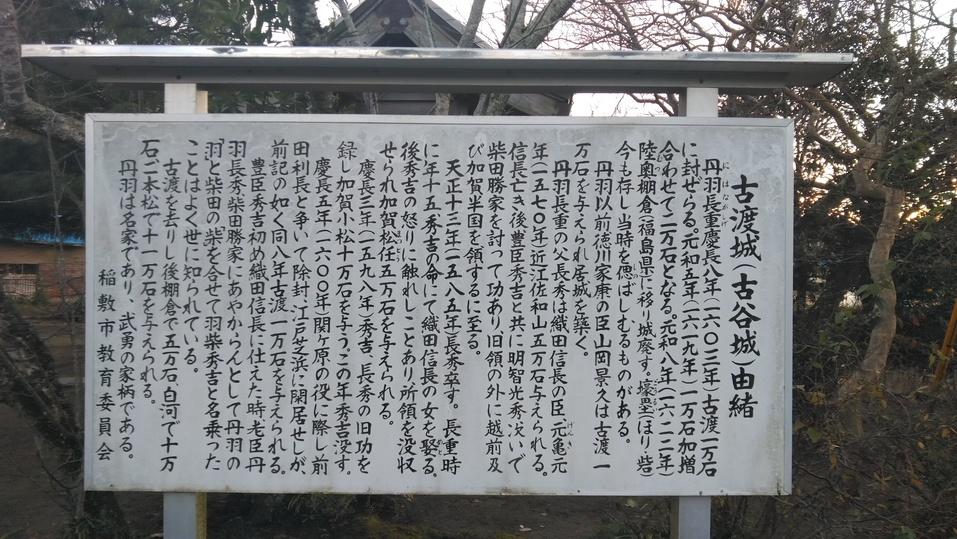 古渡城(古谷城)由緒
丹羽長重慶長八年(一六〇三年)古渡一万石
に封せらる。元和五年(一六一九年)一万石加増
合わせて二万石となる。元和八年(一六二二年)
陸奥棚倉(福島県)に移り城廃す。壕塁(ほり砦)
今も存し当時を偲ばしむるものがある。
丹羽以前徳川家康の臣山岡景久は古渡一
万石を与えられ居城を築く。
丹羽長重の父長秀は織田信長の臣元亀元
年(一五七〇年)近江佐和山五万石与えられる。
信長亡き後豊臣秀吉と共に明智光秀次いで
柴田勝家を討って功あり旧領の外に越前及
び加賀半国を領するに至る。
天正十三年(一五八五年)長秀卒す。長重時
に年十五、秀吉の命にて織田信長の女を娶る。
後秀吉の怒りに触れしことあり所領を没収
せられ加賀松任五万石を与えられる。
慶長三年(一五九八年)秀吉、長秀の旧功を
録し加賀小松十万石を与う。この年秀吉没す。
慶長五年(一六〇〇年)関ヶ原の役に際し前
田利長と争いて除封、江戸芝浜に閑居せしが、
前記の如く同八年古渡一万石を与えられる。
豊臣秀吉初め織田信長に仕えた時老臣丹
羽長秀柴田勝家にあやからんとして丹羽の
羽と柴田の柴を合せて羽柴秀吉と名乗った
ことはよく世に知られている。
古渡を去りし後棚倉で五万石、白河で十万
石二本松で十一万石を与えられる。
丹羽は名家であり、武勇の家柄である。
稲敷市教育委員会